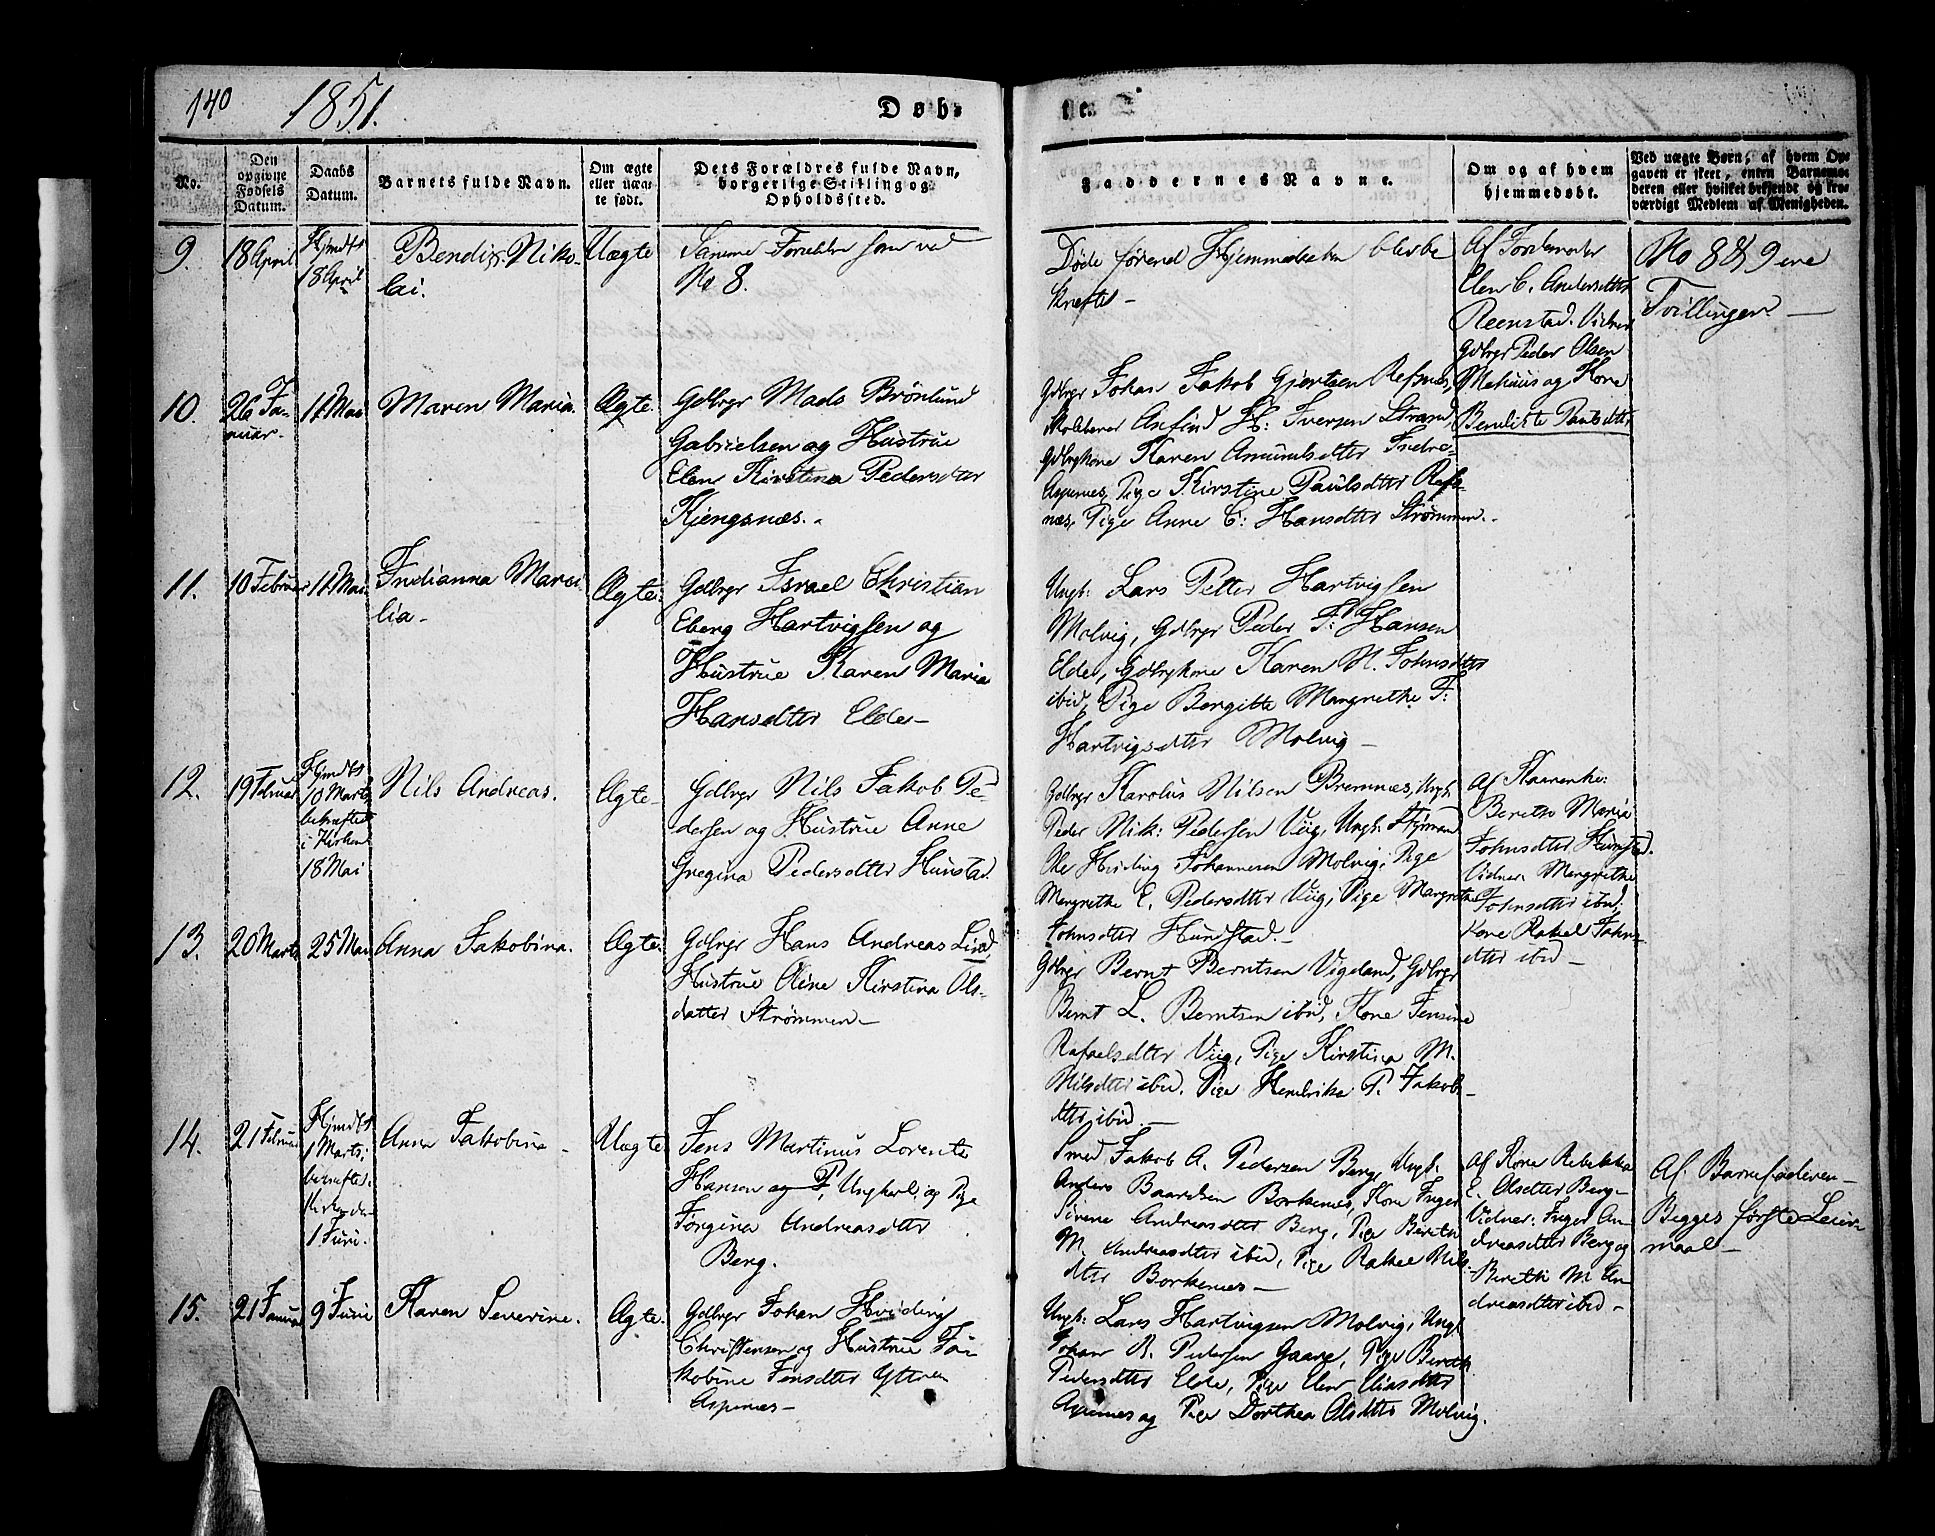 140 1851.
Døb-
te.
No.
Den opgivne Fødsels Datum.
Daabs Datum.
Barnets fulde Navn.
Om ægte eller uægte født.
Dets Forældres fulde Navn, borgerlige Stilling og Opholdssted.
Faddernes Navne.
Om og af hvem hjemmedøbt.
Ved uægte Børn, af hvem Opgaven er skeet, enten Barnemoderen eller hvilket bekjendt og troværdigt Medlem af Menigheden.
9.
18 April
Hjmdbt
18 April
Bendix Niko-
lai.
Uægte
Samme Forældre som ved
No 8.
Døde førend Hjemmedaaben blev be
kræftet -
Af Jordemoder
Elen C. Andersdtter
Reenstad. Vidner
Gdbrgr Peder Olsen
Mehuus og Kone
Berulikte Paulsdtter
No 8 & 9 ere
Tvillinger -
10.
26 Ja-
nuar.
11 Mai
Maren Maria.
Ægte.
Gdbrgr Mads Brönlund
Gabrielsen og Hustrue
Elen Kirstina Pedersdtter
Kjengsnæs. -
Gdbrgr Johan Jakob Gjertsen Refsnæs,
Skolelærer Anfind H: Iversen Strand,
Gdbrgkone Karen Amundsdtter Indre-
Aspenes, Pige Kirstine Paulsdtter Refs-
næs, Pige Anne C: Hansdtter Strømmen. -
11.
10 Februar
11 Mai
Indianna Marsi
lia -
Ægte.
Gdbrgr Israel Christian
Eberg Hartvigsen og
Hustrue Karen Maria
Hansdtter Elde -
Ungk. Lars Petter Hartvigsen
Molvig, Gdbrgr Peder J: Hansen
Elde, Gdbrgkone Karen N. Johnsdtter
ibid, Pige Bergitte Margrethe J:
Hartvigsdtter Molvig -
12.
19 Februar
Hjmdbt
10 Marts
bekræftet
i Kirken
18 Mai
Nils Andreas.
Ægte -
Gdbrgr Nils Jakob Pe-
dersen og Hustrue Anne
Gregina Pedersdtter Hunstad.
Gdbrgr Karolus Nilsen Bremnes, Ungk.
Peder Nik: Pedersen Viig, Ungk.
Ole Hviding Johannesen Molvig, Pige
Margrethe E. Pedersdtter Viig, Pige Margrethe
Johnsdtter Hundstad. -
Af
Berethe Maria
Johnsdtter Hunstad.
Vidner Margrethe
Johnsdtter ibid,
Kone Rakel Johns-
dtter ibid -
13.
20 Marts
25 Mai
Anna Jakobina.
Ægte.
Gdbrgr Hans Andreas Lind,
Hustrue Oline Kirstina Ols-
datter Strømmen -
Gdbrgr Bernt Berntsen Vigeland, Gdbrgr
Bernt L. Berntsen ibid, Kone Jensine
Rafaelsdtter Viig, Pige Kirstina M.
Nilsdtter ibid. Pige Hendrika P. Jakob-
dtter ibid -
14.
21 Februar
Hjmdbt
1 Marts,
bekræftet
Kirken d
1 Juni.
Anna Jakobina -
Uægte
Jens Martinus Lorents
Hansen og P, Ungkarl, og Pige
Jørgina Andreasdtter
Berg.
Smed Jakob A. Pedersen Berg, Ungk.
Anders Baardsen Borkenes, Kone Inger
Sirene Andreasdtter Berg, Pige Bereth
M. Andreasdtter ibid, Pige Rakel Nils-
dtter Borkenes -
Af Kone Rebekka
E. Olsdtter Berg -
Vidner: Inger An-
dreasdtter Berg og
Bereth M An-
dreasdtter ibid -
Af Barnefaderen -
Begges første Leier-
maal -
15.
21 Januar
9 Juni
Karen Severine.
Ægte.
Gdbrgr Johan Hviding
Christensen og Hustrue Ja-
kobine Jensdtter Yttren
Aspenæs -
Ungk: Lars Hartvigsen Molvig, Ungk
Johan A. Pedersen Gaare, Pige Bereth
Pedersdtter Elde, Pige Elen Eliasdtter
Aspenes og Pige Dorthea Olsdtter Molvig.